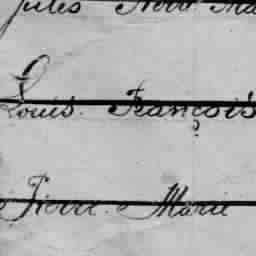 Jules
Louis François
Pierre Marie